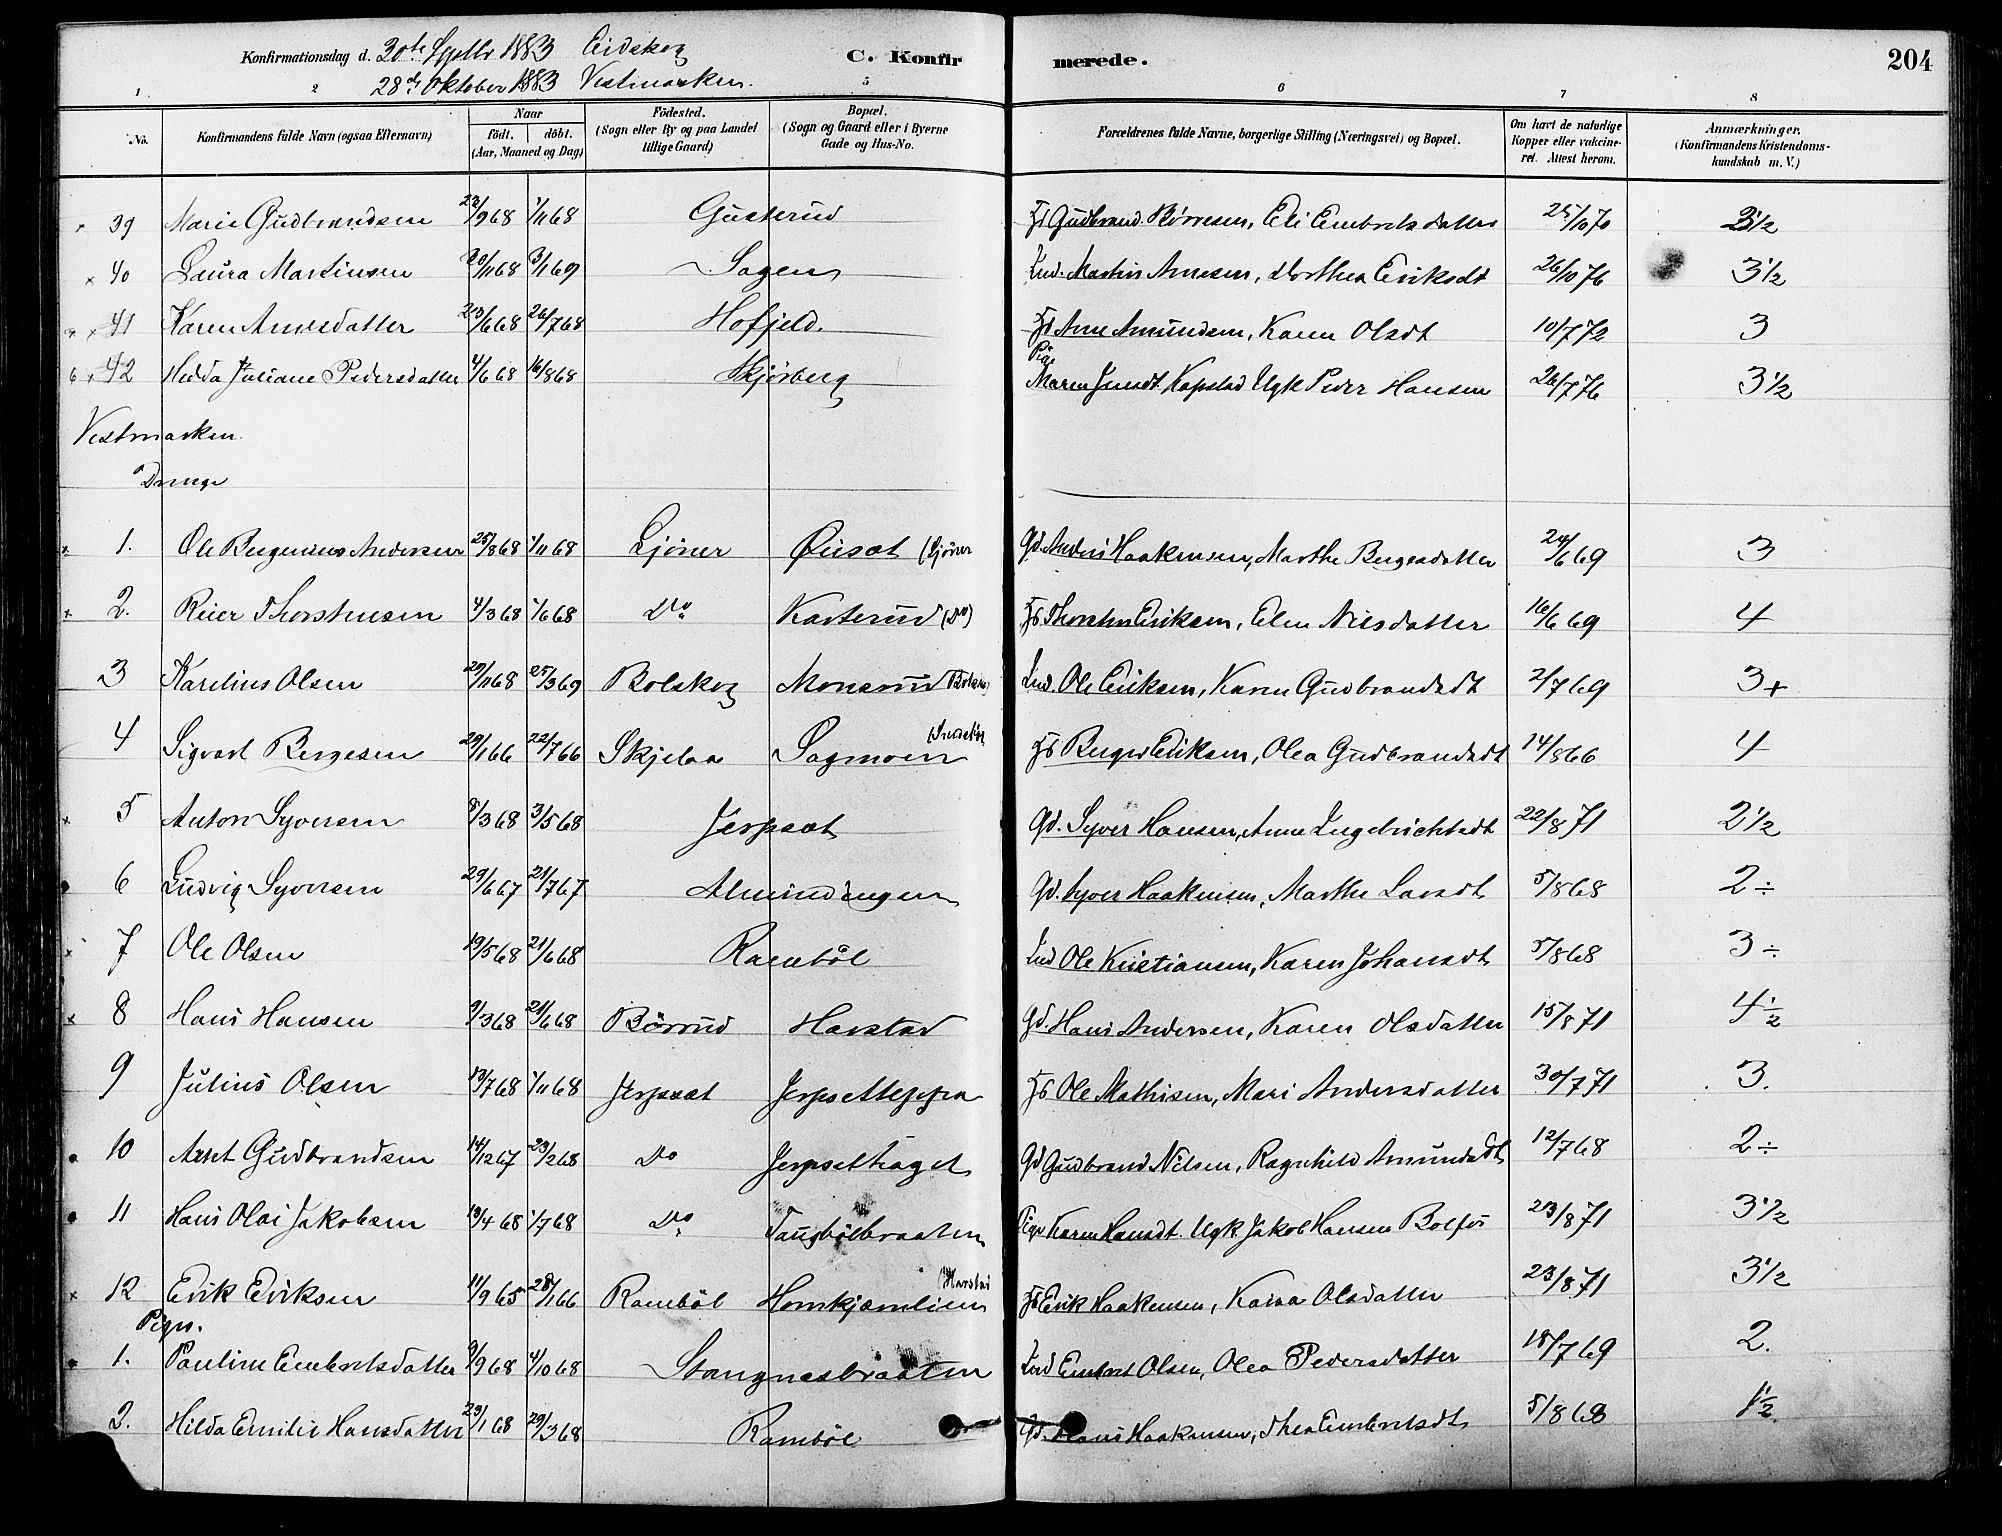 Konfirmationsdag d. 30te Septbr 1883 Eidskog
28de Oktober 1883 Vestmarken.
C. Konfirmerede.
204
1 2 5 6 7 8
No. Konfirmandens fulde Navn (ogsaa Efternavn) Naar født. døbt. (Aar, Maaned og Dag) Fødested. (Sogn eller By og paa Landet tillige Gaard) Bopæl. (Sogn og Gaard eller i Byerne Gade og Hus-No. Forældrenes fulde Navne, borgerlige Stilling (Næringsvei) og Bopæl. Om havt de naturlige Kopper eller vakcineret. Attest herom. Anmærkninger. (Konfirmandens Kristendomskundskab m. V.)
39 Marie Gudbrandsen 22/9 68 1/11 68 Gusterud Gudbrand Børresen, Eli Embretsdatter 25/10 70 3 1/2
40 Laura Martinsen 20/11 68 3/1 69 Sagen Ind. Martin Arnesen, Dorthea Eriksdt 26/10 76 3 1/2
41 Karen Arnesdatter 23/6 68 26/7 68 Hofjeld. Arne Amundsen, Karen Olsdt 10/7 72 3
42 Hedda Juliane Pedersdatter 4/6 68 16/8 68 Skjørberg Pige Maren Kopstad Ugk Peder Hansen 26/7 76 3 1/2
Vestmarken
Drenge
1. Ole Bergenius Andersen 25/8 68 1/11 68 Ljøner Øiesæt (Ljøner Gd. Anders Haakensen, Marthe Bergesdatter 24/6 69 3
2. Reier Thorstensen 4/3 68 1/6 68 Do Kasterud (Do) Thorsten Eriksen, Elen Nilsdatter 16/6 69 4
3 Karelius Olsen 29/11 68 25/3 69 Bolskog Monerud Ind. Ole Eriksen, Karen Gudbrandsdt 2/7 69 3+
4 Sigvart Bergesen 29/1 66 22/7 66 Skjelaa Sagmoen Berger Eriksen, Olea Gudbrandsdt 14/8 66 4
5 Anton Syversen 8/3 68 3/5 68 Jerpsæt Gd. Syver Hansen, Anne Ingebrichtsdt 22/8 71 2 1/2
6 Ludvig Syversen 29/6 67 21/7 67 Almindingen Gd. Syver Haakensen, Marthe Larsdt 5/8 68 2÷
7 Ole Olsen 19/5 68 21/6 68 Rambøl Ind Ole Kristiansen, Karen Johansdt 5/8 68 3÷
8 Hans Hansen 9/3 68 21/6 68 Børrud Harstad Gd. Hans Andersen, Karen Olsdatter 15/8 71 4 1/2
9 Julius Olsen 13/7 68 1/11 68 Jerpsæt Jerpsetteppa Ole Mathisen, Mari Andersdatter 30/7 71 3.
10 Gudbrandsen 14/12 67 23/2 68 Do Jerpsethaget Gd Gudbrand Nilsen, Ragnhild Amundsdt 12/7 68 2÷
11 Hans Olai Jakobsen 13/4 68 1/7 68 Do Taugbølbraaten Pige Karen Hansdt. Ugk Jakob Hansen 23/8 71 3 1/2
12 Erik Eriksen 11/9 65 28/1 66 Rambøl Homkjærnlien (Harstad Erik Haakensen, Kaisa Olsdatter 23/8 71 3 1/2
Piger.
1. Pauline Embretsdatter 9/9 68 4/10 68 Stangnesbraaten Ind Embret Olsen, Olea Pedersdatter 18/7 69 2.
2. Hilda Emilie Hansdatter 23/1 68 29/3 68 Rambøl Gd. Hans Haakensen, Thea Embretsdt 5/8 68 1 1/2